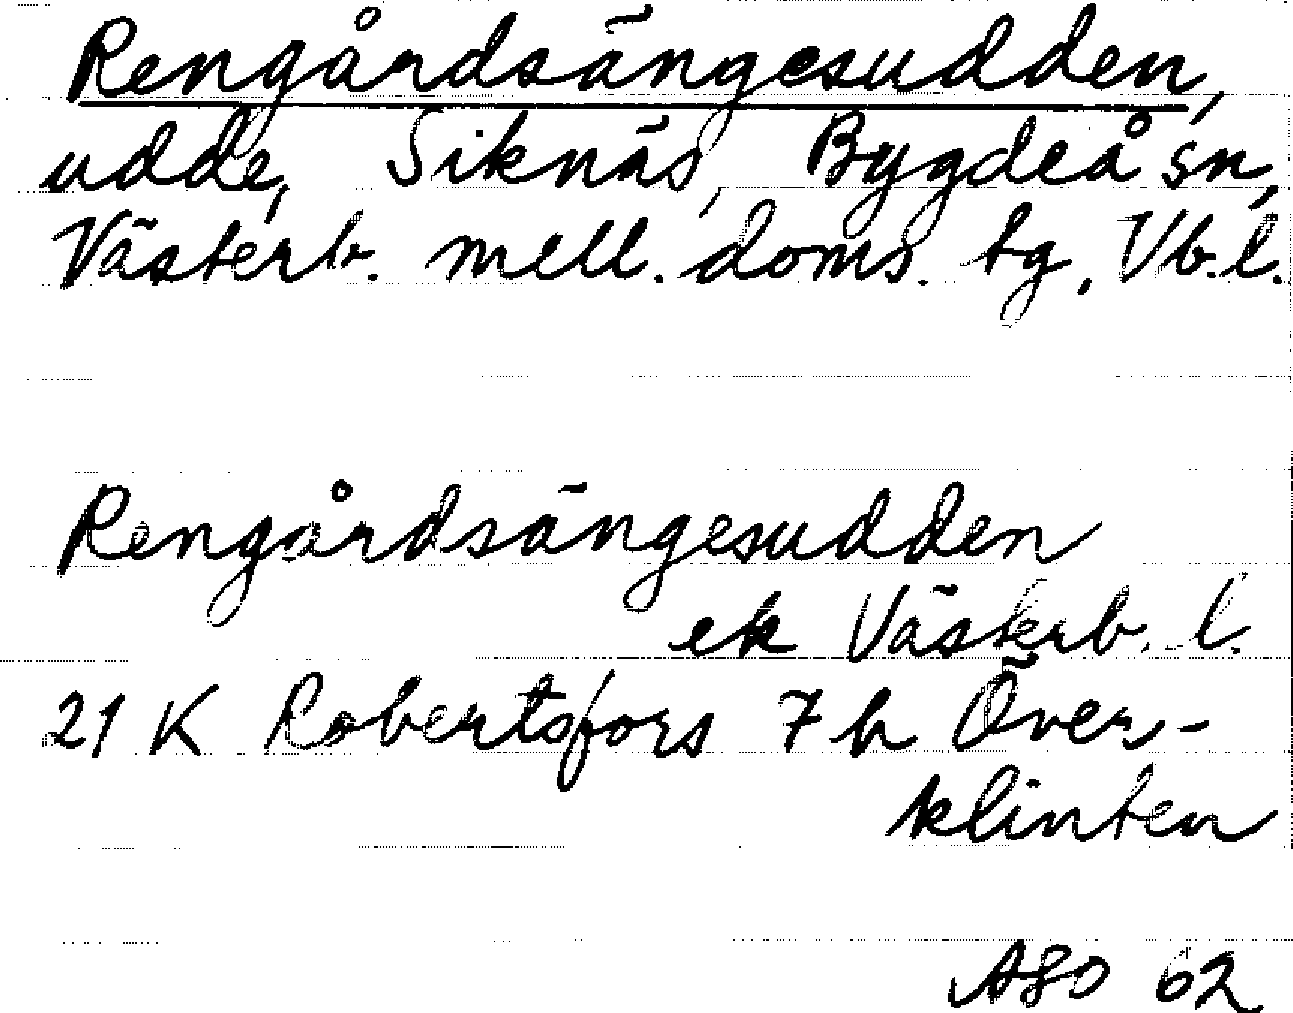 Rengårdsängesudden,
udde, Siknäs, Bygdeå sn,
Västerb. mell. doms. tg, Vb.l.
Rengårdsängesudden
ek Västerb. l.
21 K Robertsfors 7 h Över-
klinten
ASO 62